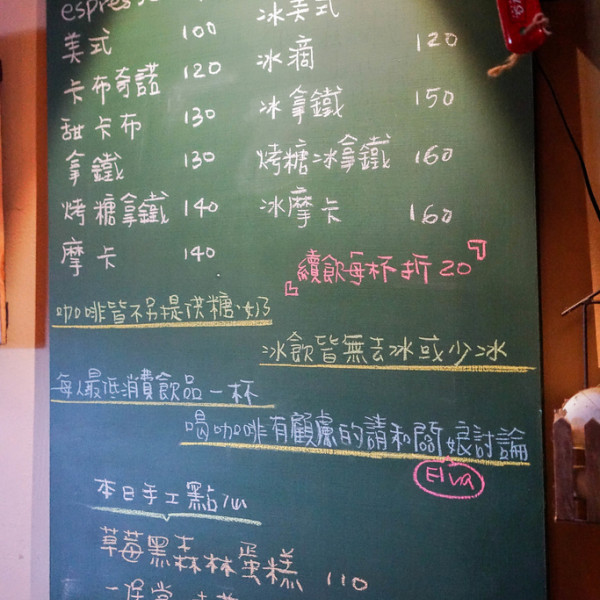 espresso
美式 100
卡布奇諾 120
甜卡布 130
拿鐵 130
烤糖拿鐵 140
摩卡 140
冰美式
冰滴 120
冰拿鐵 150
烤糖冰拿鐵 160
冰摩卡 160
續飲每杯折20
咖啡皆不另提供糖、奶
冰飲皆無去冰或少冰
每人最低消費飲品一杯
喝咖啡有顧慮的請和闆娘討論
Elva
本日手工點心
草莓黑森林蛋糕 110
一保堂